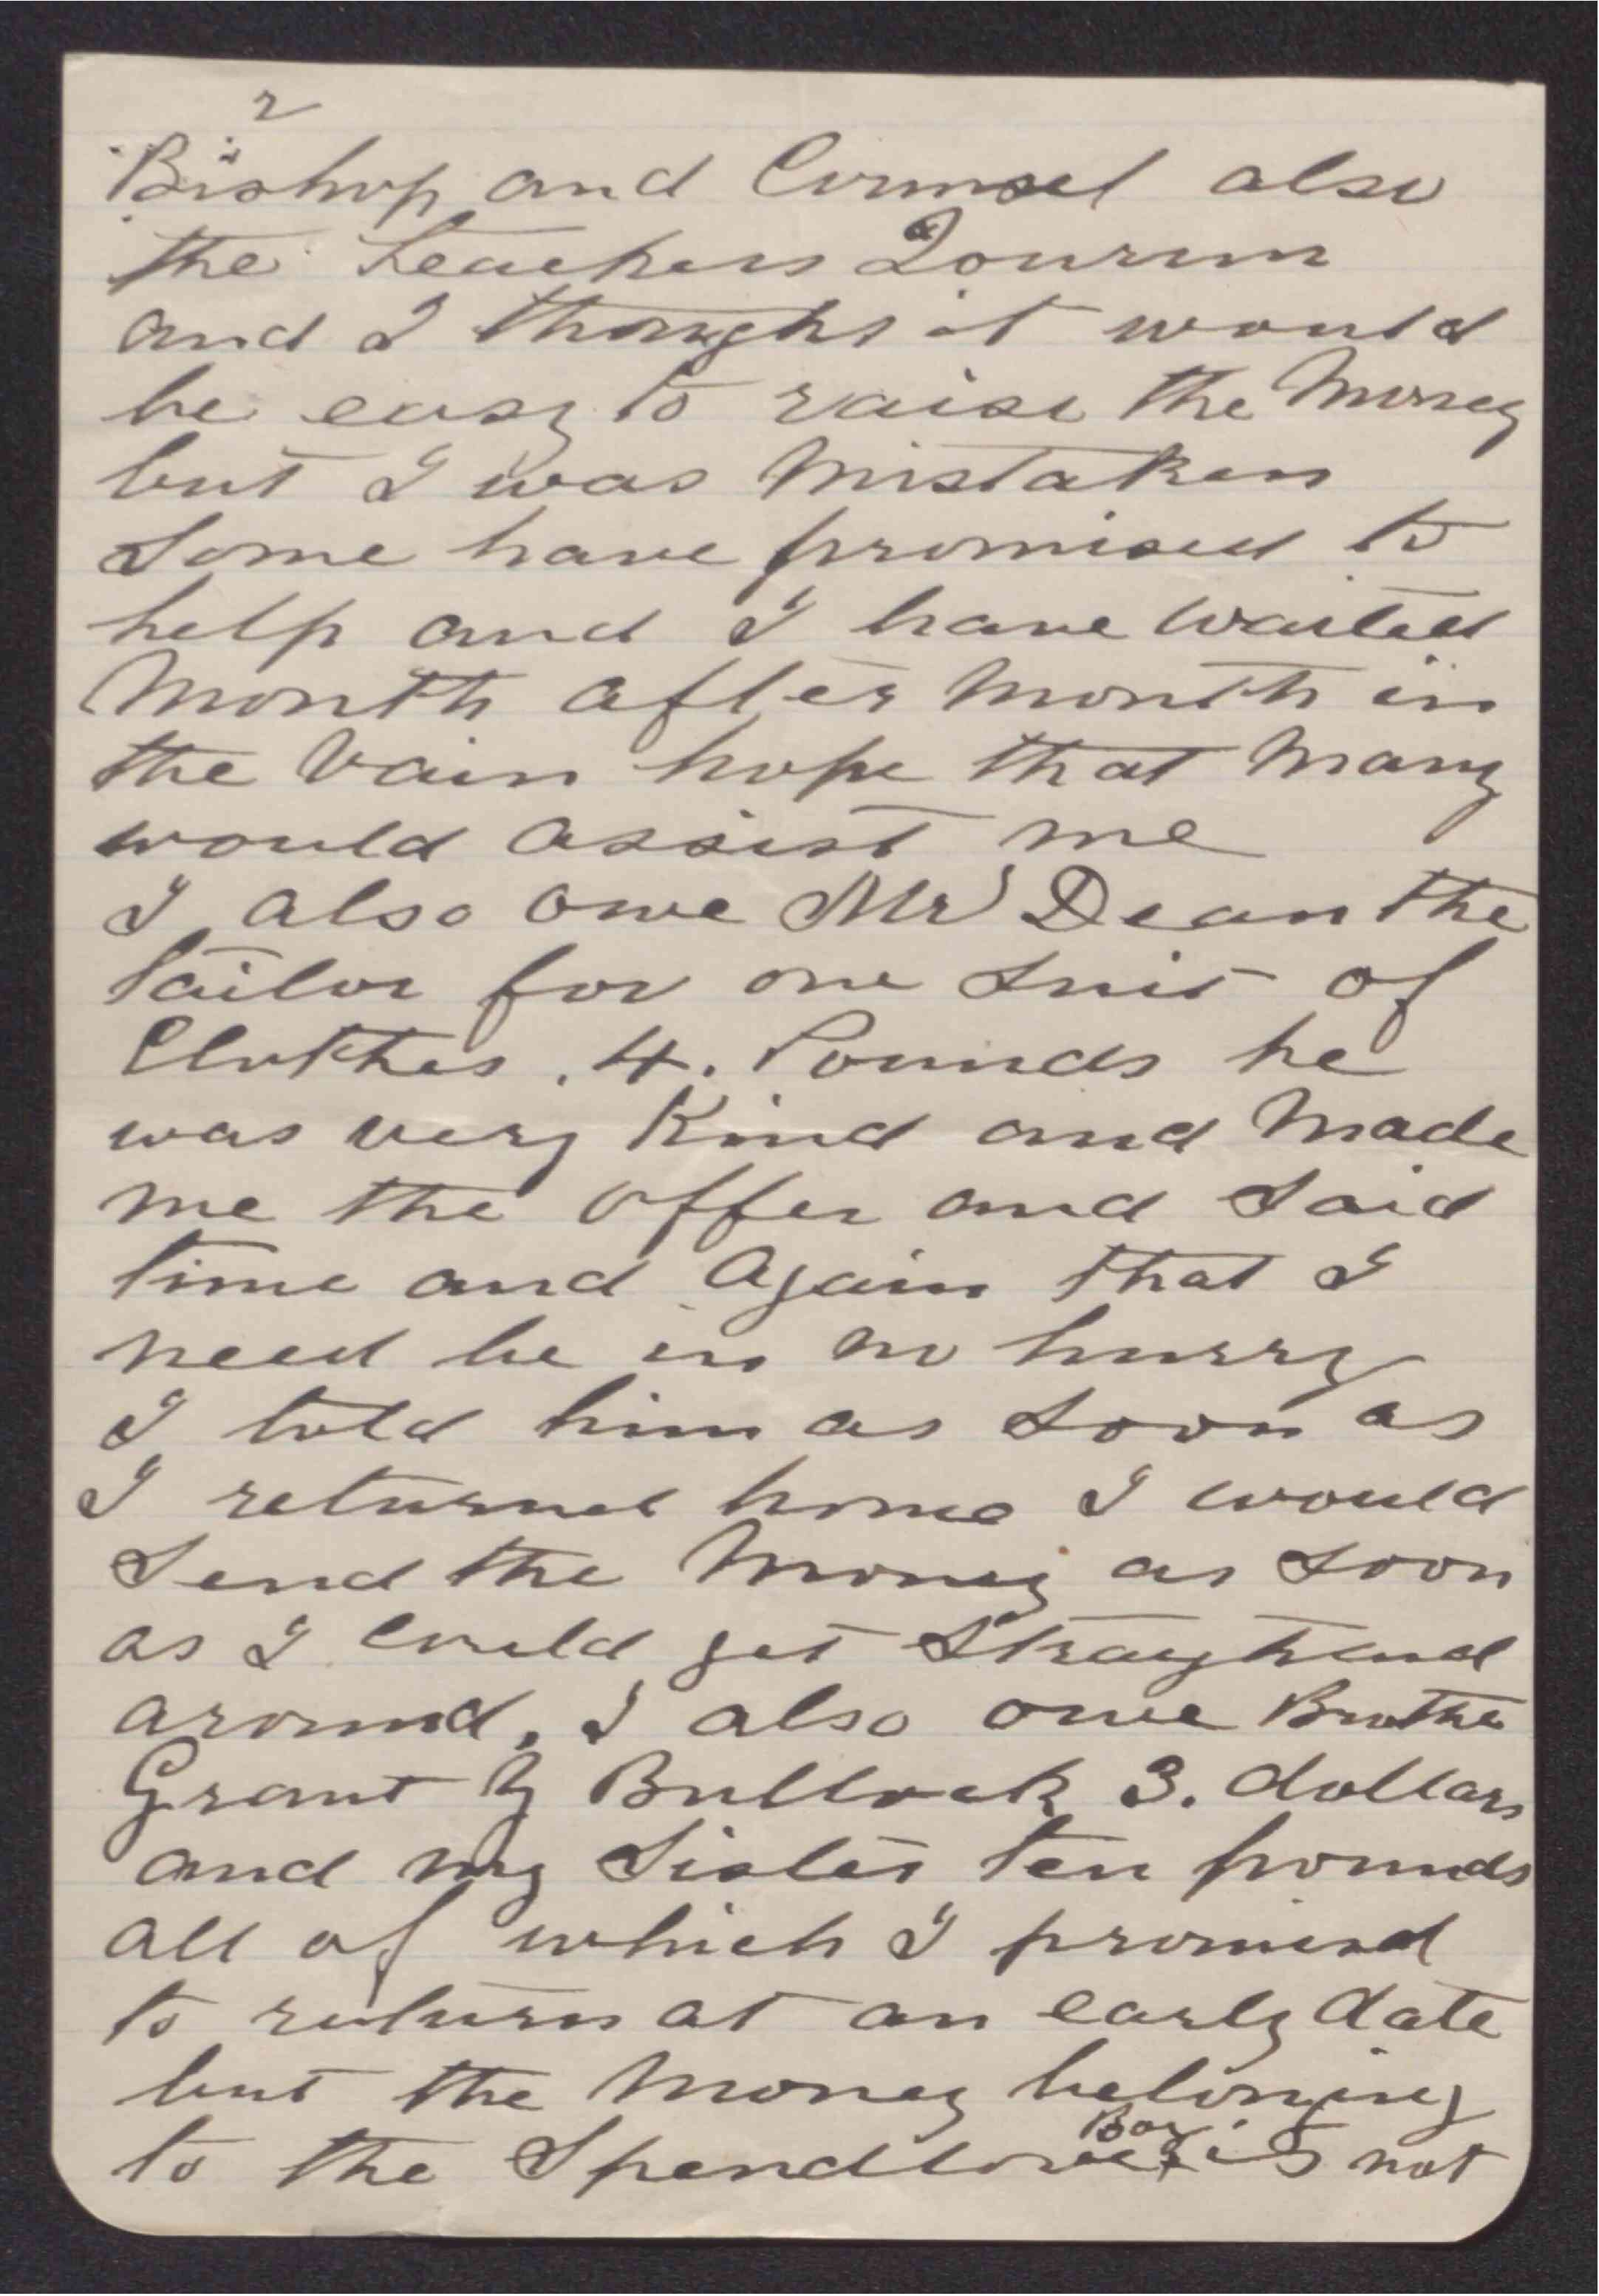 2
Bishop and Counsel also
the teachers Qourum
and I thought it would
be easy to raise the Money
but I was Mistaken
Some have promised to
help and I have waited
Month after Month in
the Vain hope that Many
would assist me
I also owe Mr Dean the
tailor for one Suit of
Clothes . 4 . Pounds he
was very Kind and Made
me the offer and Said
time and Again that I
need be in no hurry
I told him as Soon as
I returned home I would
Send the Money as Soon
as I Could get Straightend
around, I also owe Brother
Grant & Bullock 3. dollars
and my Sister ten pounds
all of which I promised
to return at an early date
but the Money belonging
to the Spendlove Boy is not